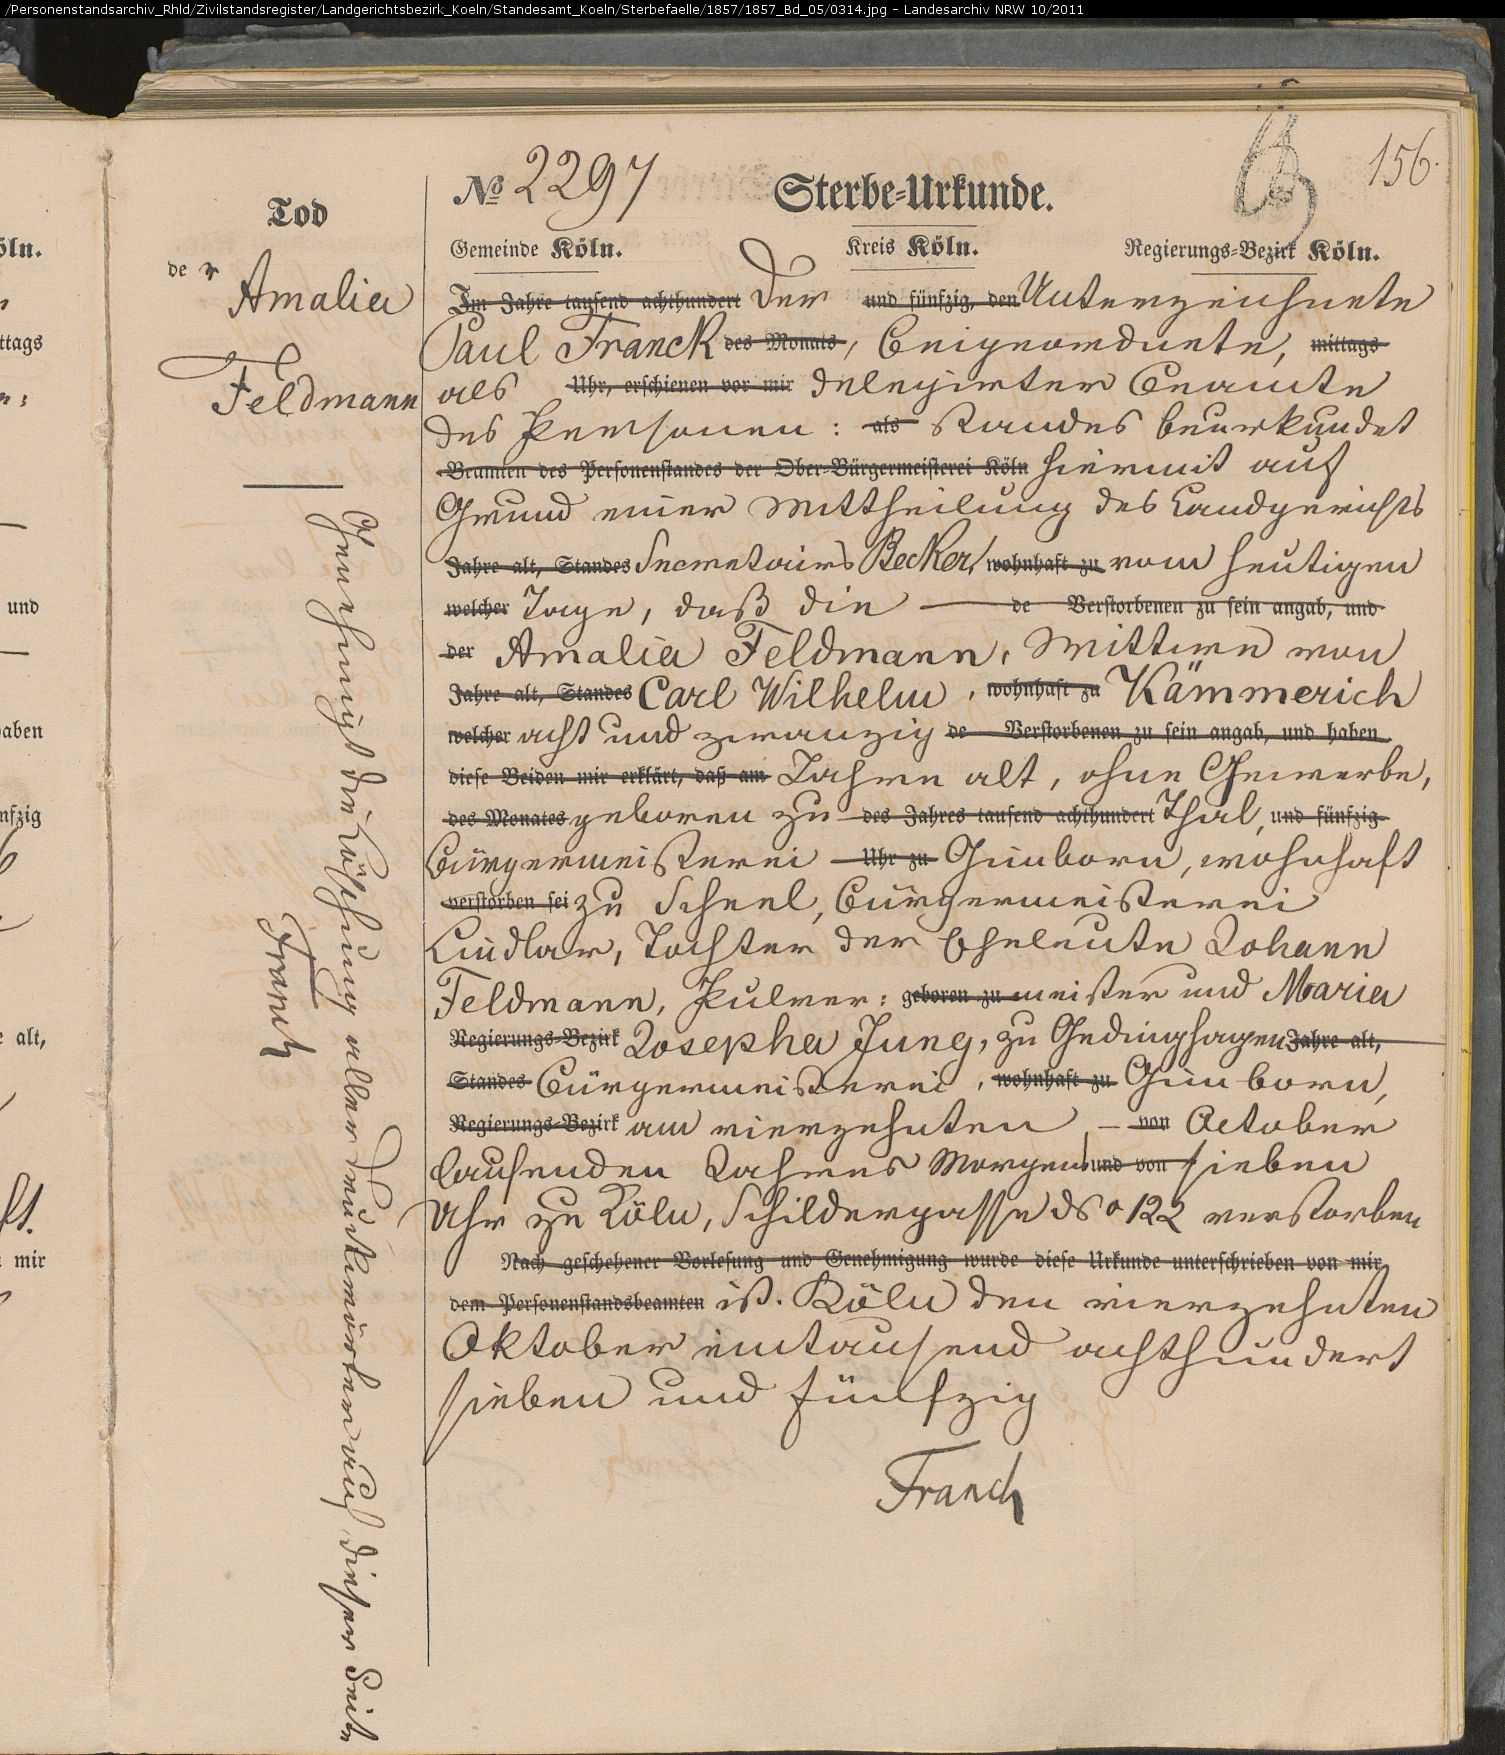 /Personenstandsarchiv_Rhld/Zivilstandsregister/Landgerichtsbezirk_Koeln/Standesamt_Koeln/Sterbefaelle/1857/1857_Bd_05/0314.jpg - Landesarchiv NRW 10/2011
156.
№ 2297 Sterbe-Urkunde.
Gemeinde Köln. Kreis Köln. Regierungs-Bezirk Köln.
Tod
der
Amalia
Feldmann
Im Jahre tausend achthundert Der und fünfzig, den Unterzeichnete
Paul Franck des Monats, Beigeordnete, mittags
als Uhr, erschienen vor mir delegirter Beamte
des Personen: als Standes beurkundet
Beamten des Personenstandes der Ober-Bürgermeisterei Köln hiermit auf
Grund einer Mittheilung des Landgerichts
Jahre alt, Standes Secretairs Becker, wohnhaft zu vom heutigen
welcher Tage, daß die de Verstorbenen zu sein angab, und
der Amalia Feldmann, Wittwe von
Jahre alt, Standes Carl Wilhelm, wohnhaft zu Kämmerich
welcher acht und zwanzig de Verstorbenen zu sein angab, und haben
diese Beiden mir erklärt, daß am Jahre alt, ohne Gewerbe,
des Monates geboren zu des Jahres tausend achthundert Thal, und fünfzig
Bürgermeisterei Uhr zu Gimborn, wohnhaft
verstorben sei zu Scheel, Bürgermeisterei
Lindlar, Tochter der Eheleute Johann
Feldmann, Pulver: geboren zu meister und Maria
Regierungs-Bezirk Josepha Jung, zu Gedinghagen Jahre alt,
Standes Bürgermeisterei, wohnhaft zu Gimborn,
Regierungs-Bezirk am vierzehnten von October
laufenden Jahres Morgens und von sieben
Uhr zu Köln, Schildergasse No 122 verstorben
Nach geschehener Vorlesung und Genehmigung wurde diese Urkunde unterschrieben von mir
dem Personenstandsbeamten ist. Köln den vierzehnten
Oktober eintausend achthundert
sieben und fünfzig
Franck
Genehmigt die Löschung aller Druckwörter auf dieser Seite
Franck
öln.
ttags
und
haben
nfzig
alt,
mir